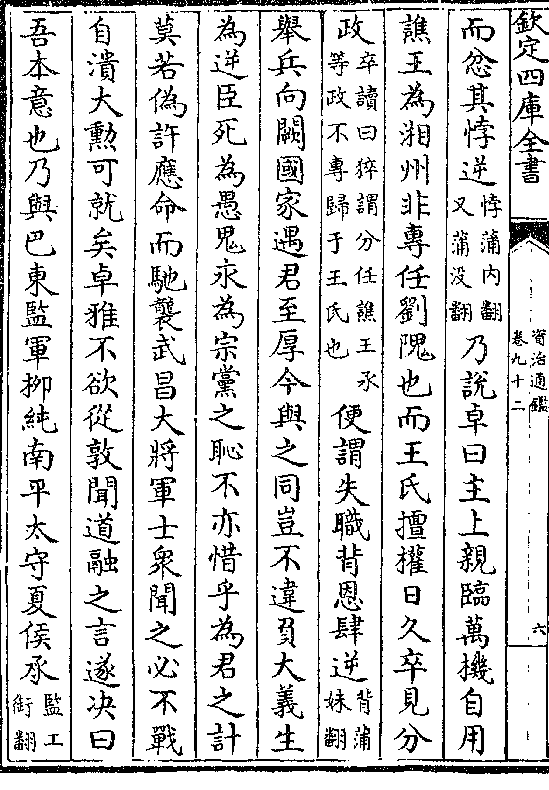 欽定四庫全書
資治通鑑
卷九十二
六
而忿其悖逆悖蒲内翻又蒲没翻乃說卓曰主上親臨萬機自用
譙王為湘州非專任劉隗也而王氏擅權日久卒見分
政卒讀曰猝謂分任譙王承等政不專歸于王氏也便謂失職背恩肆逆背蒲妹翻
舉兵向闕國家遇君至厚今與之同豈不違負大義生
為逆臣死為愚鬼永為宗黨之恥不亦惜乎為君之計
莫若偽許應命而馳襲武昌大將軍士衆聞之必不戰
自潰大勲可就矣卓雅不欲從敦聞道融之言遂决曰
吾本意也乃與巴東監軍柳純南平太守夏侯承監工銜翻